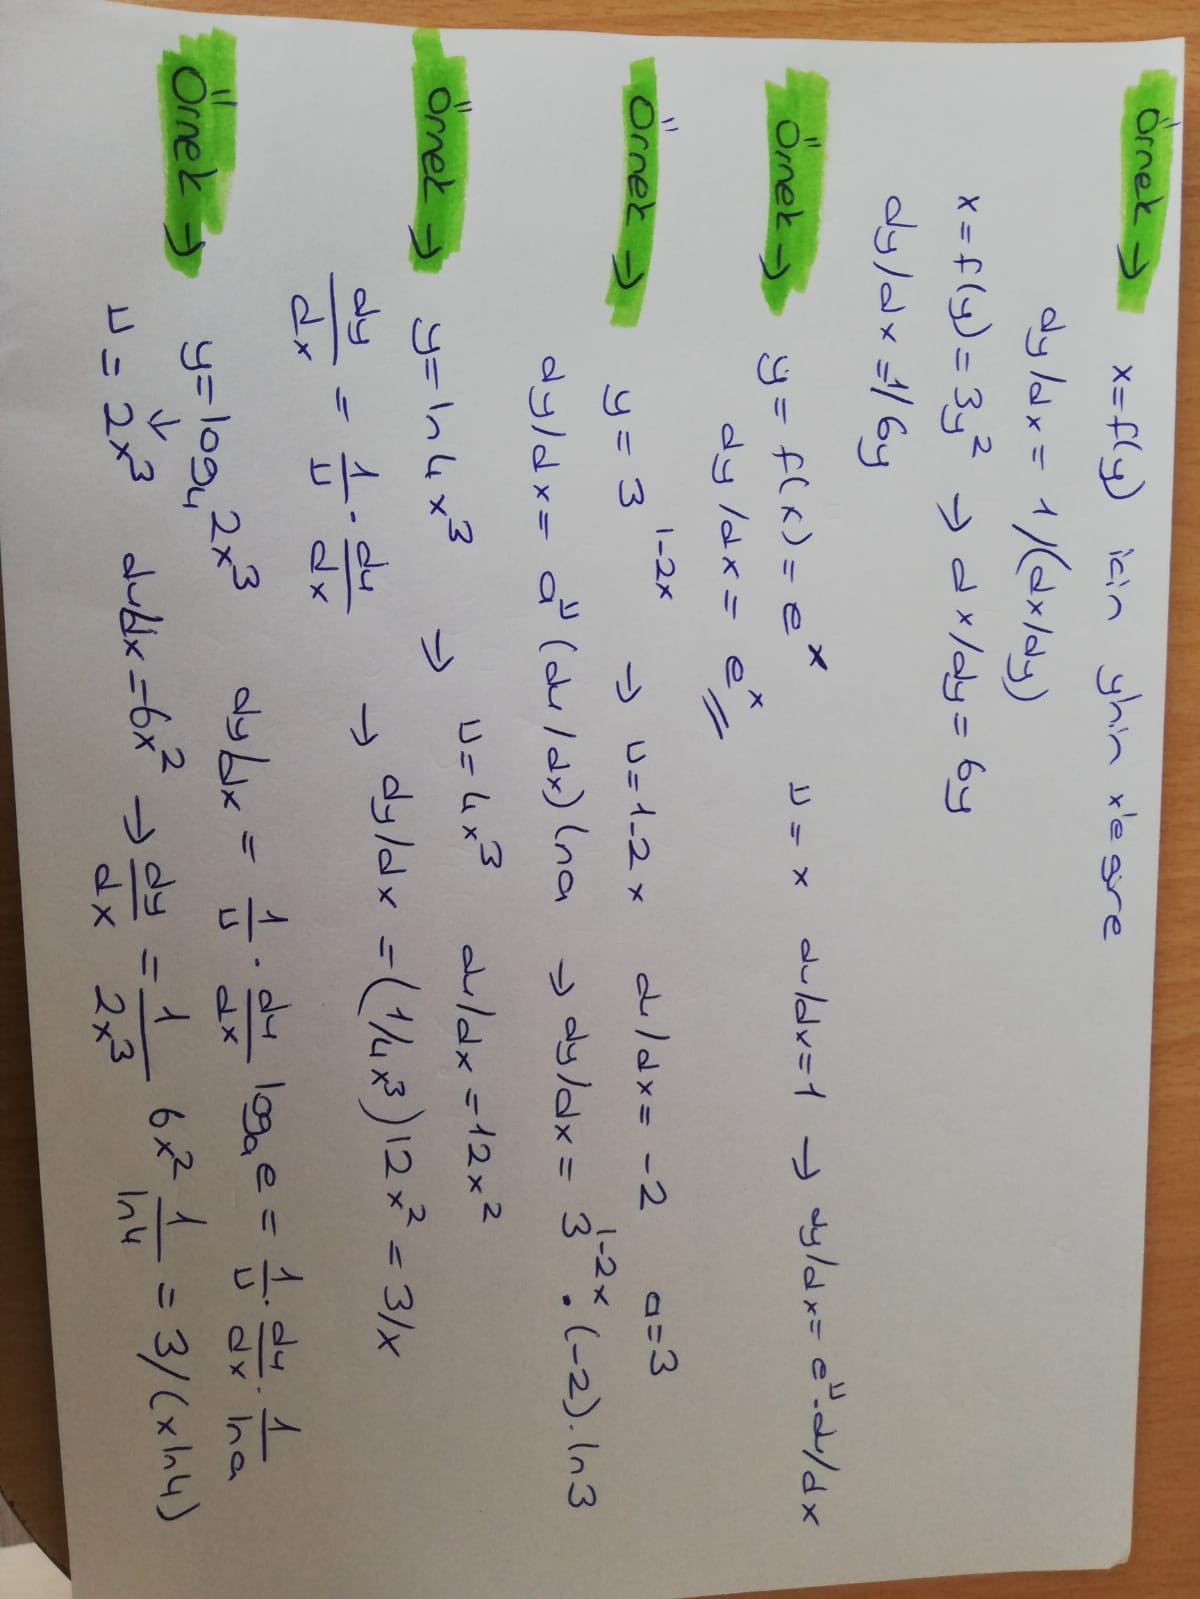 Örnek → x=f(y) için y'nin x'e göre
dy/dx = 1/(dx/dy)
x=f(y)=3y² → dx/dy = 6y
dy/dx = 1/6y
Örnek → y = f(x) = eˣ u = x du/dx=1 → dy/dx = eᵘ.du/dx
dy/dx = eˣ
Örnek → y = 3¹⁻²ˣ → u=1-2x du/dx = -2 a=3
dy/dx = aᵘ(du/dx)lna → dy/dx = 3¹⁻²ˣ.(-2).ln3
Örnek → y=ln4x³ → u=4x³ du/dx=12x²
dy/dx = 1/u . du/dx → dy/dx = (1/4x³)12x² = 3/x
Örnek → y=log₄2x³ dy/dx = 1/u . du/dx logₐe = 1/u . du/dx . 1/lna
↓
u = 2x³ du/dx=6x² → dy/dx = 1/2x³ 6x² 1/ln4 = 3/(xln4)